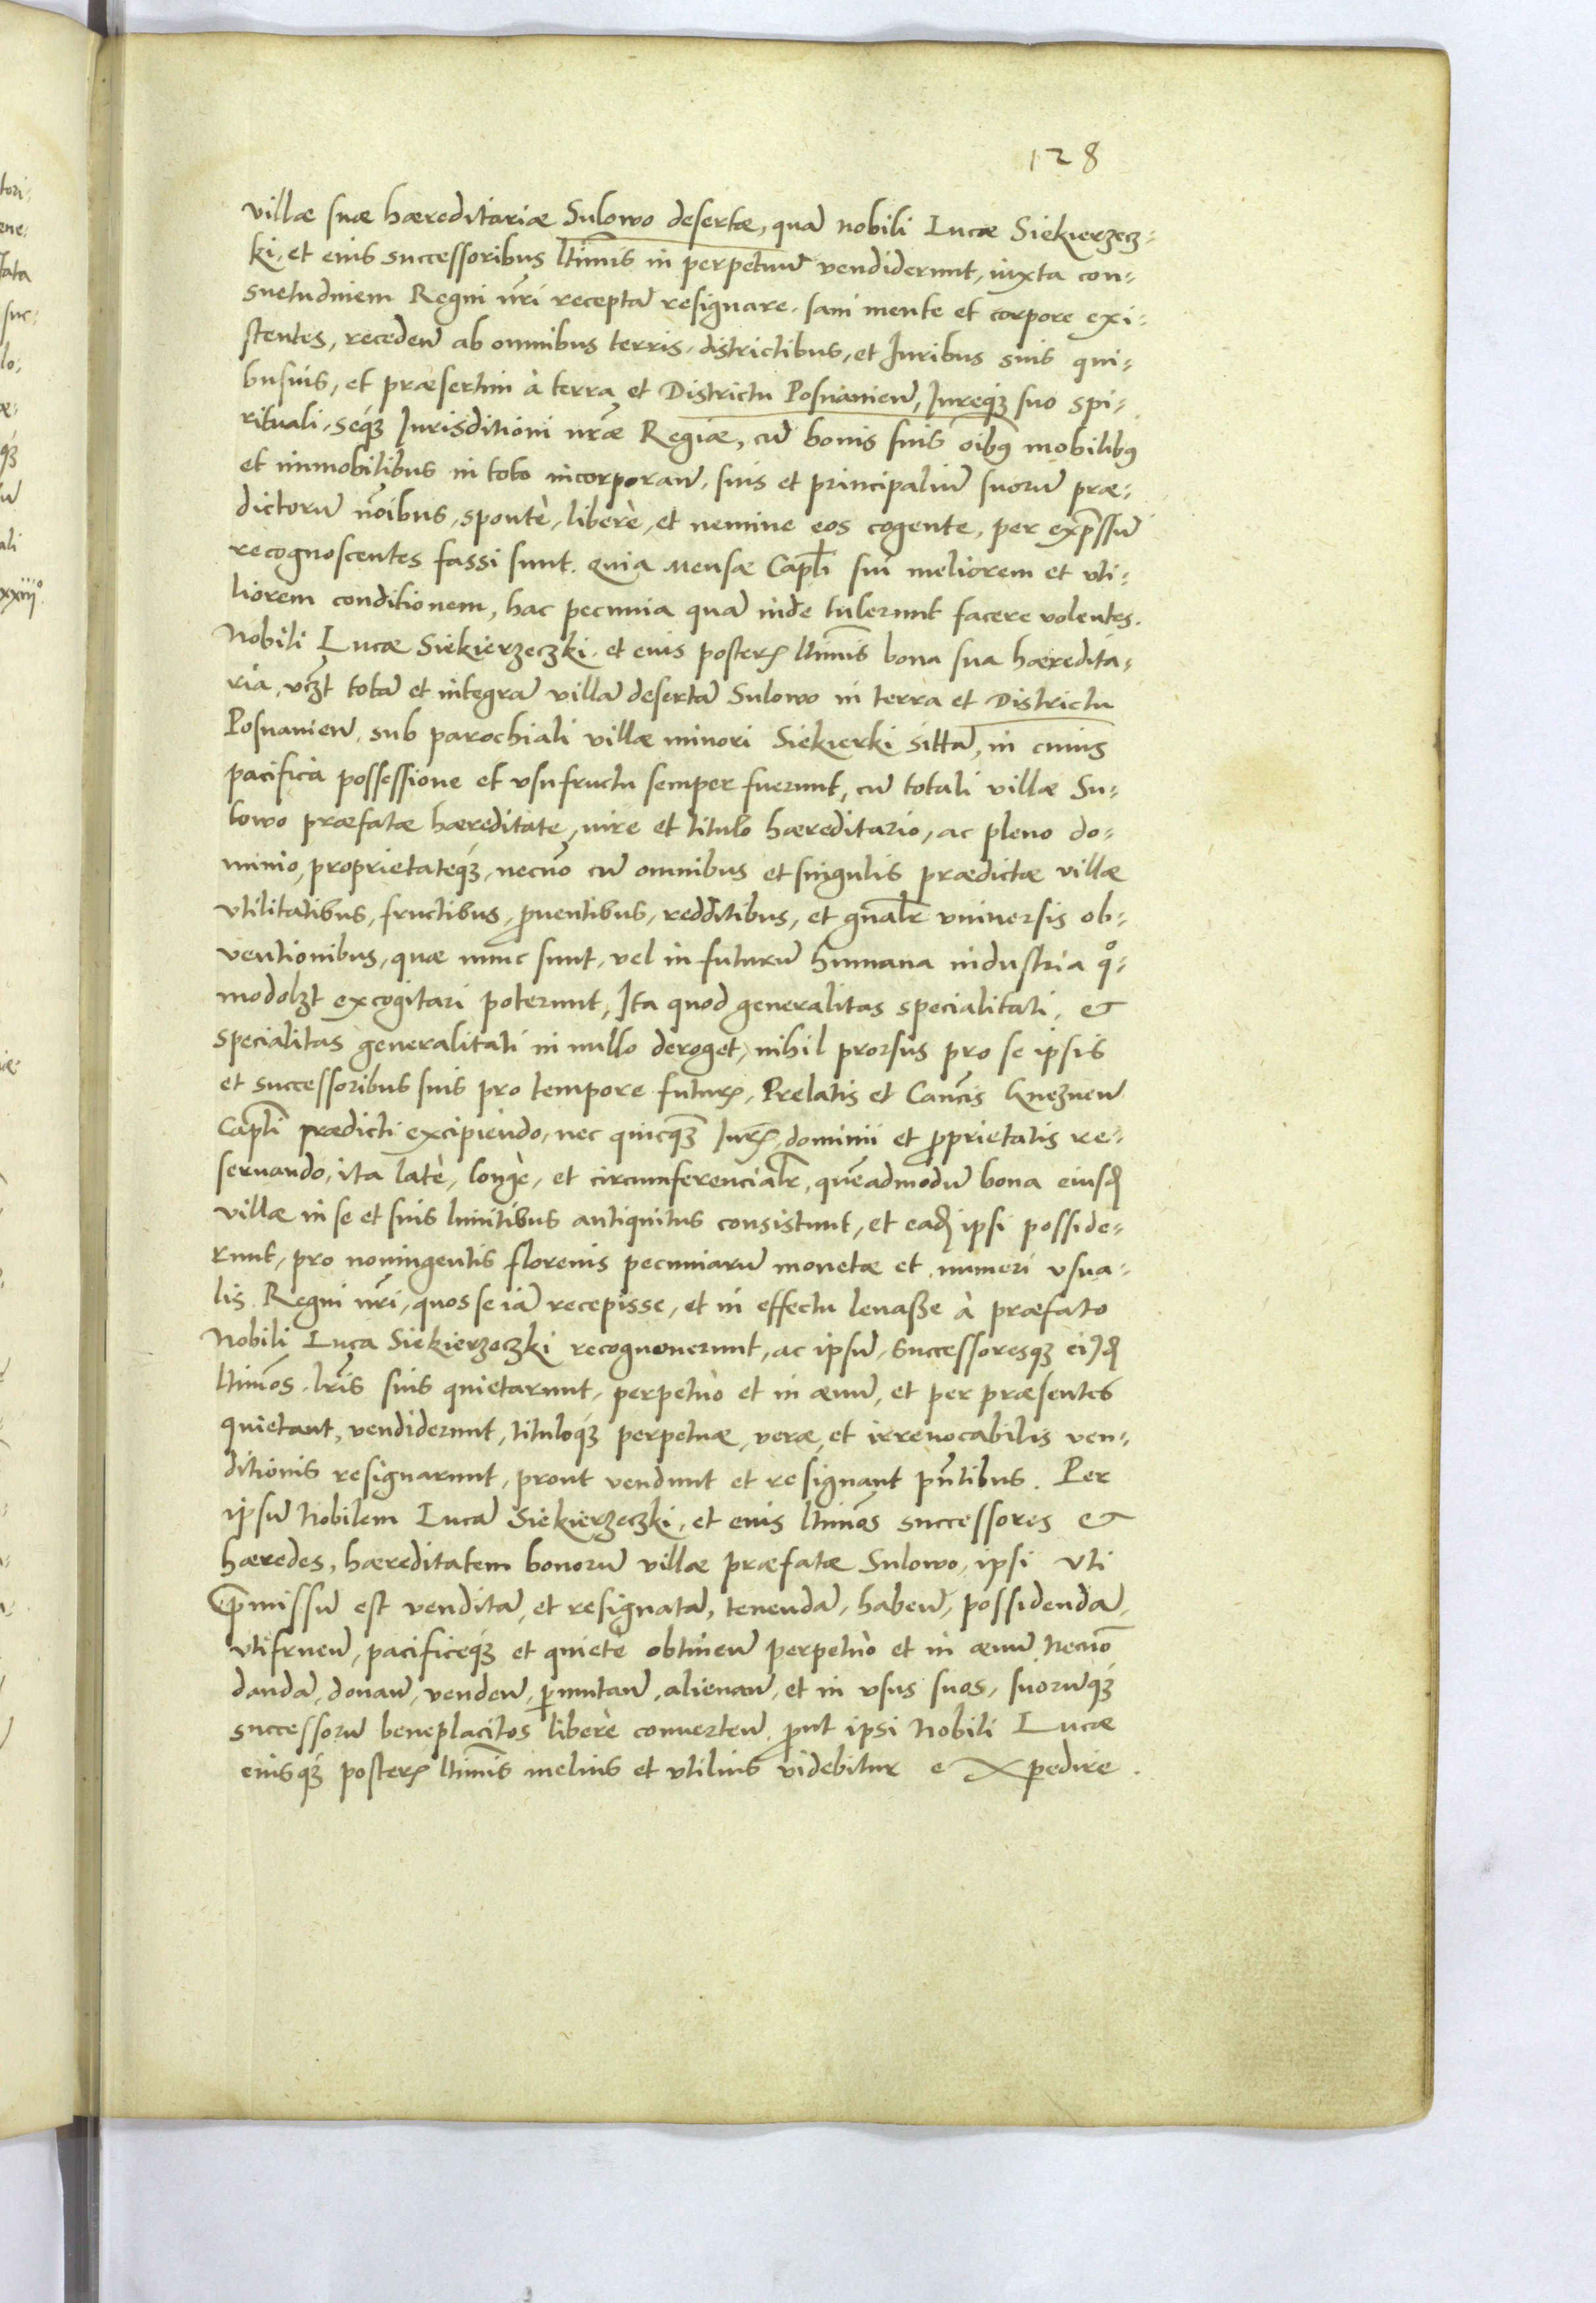 128
villæ suæ hæreditariæ Sulowo desertæ, quā nobili Lucæ Siekierzecz-
ki, et eius successoribus ltimis in perpetuū vendiderunt, iuxta con-
suetudinem Regni nr̄i receptā resignare, sani mente et corpore exi-
stentes, recedeñ ab omnibus terris, districtibus, et Iuribus suis qui-
busuis, et præsertim à terra et Districtu Posnanieñ, Iureq́ȝ suo spi-
rituali, seq́ȝ Iurisditioni nr̄æ Regiæ, cū bonis suis oībꝰ mobilibꝰ
et immobilibus in toto incorporañ, suis et principaliū suorū præ-
dictorū nōibus, spontè, liberè, et nemine eos cogente, per exp̄ssū
recognoscentes fassi sunt. Quia mensæ Capłi sui meliorem et vti-
liorem conditionem, hac pecunia quā inde tulerunt facere volentes.
Nobili Lucæ Siekierzeczki, et eius posterꝝ ltimis bona sua hæredita-
ria, vczt totā et integrā villā desertā Sulowo in terra et Districtu
Posnanieñ, sub parochiali villæ minori Siekierki sittā, in cuius
pacifica possessione et vsufructu semper fuerunt, cū totali villæ Su-
lowo præfatæ hæreditate, iure et titulo hæreditario, ac pleno do-
minio, proprietateq́ȝ, necnō cū omnibus et singulis prædictæ villæ
vtilitatibus, fructibus, ꝓuentibus, redditibus, et gn̄alr vniuersis ob-
ventionibus, quæ nunc sunt, vel in futurū humana industria qͦ-
modolȝt excogitari poterunt, Ita quod generalitas specialitati, et
specialitas generalitati in nullo deroget, nihil prorsus pro se ipsis
et successoribus suis pro tempore futurꝝ, Prelatis et Cancis Gnezneñ
Capłi prædicti excipiendo, nec quicq̄ȝ Iurꝝ, dominii et ꝓprietatis re-
seruando, ita latè, longè, et circumferencialr, quēadmodū bona eiusd
villæ in se et suis limitibus antiquitus consistunt, et ead ipsi posside-
runt, pro noningentis florenis pecuniarū monetæ et numeri vsua-
lis Regni nr̄i, quos se iā recepisse, et in effectu leuaße à præfato
Nobili Luca Siekierzeczki recognouerunt, ac ipsū, successoresqȝ eiɉd
ltimos, lr̄is suis quietarunt, perpetuò et in æuū, et per præsentes
quietant, vendiderunt, tituloq́ȝ perpetuæ, veræ, et irreuocabilis ven-
ditionis resignarunt, prout vendunt et resignant pn̄tibus. Per
ipsū Nobilem Lucā Siekierzeczki, et eius ltimos successores et
hæredes, hæreditatem bonorū villæ præfatæ Sulowo, ipsi vti
p̄missū est venditā, et resignatā, tenendā, habeñ, possidendā,
vtifrueñ, pacificeq́ȝ et quietè obtineñ perpetuò et in æuū, Necnō
dandā, donañ, vendeñ, ꝑmutañ, alienañ, et in vsus suos, suorūq́ȝ
successorū beneplacitos liberè conuerteñ, ꝓut ipsi Nobili Lucæ
eiusq́ȝ posterꝝ ltimis melius et vtilius videbitur expedire.